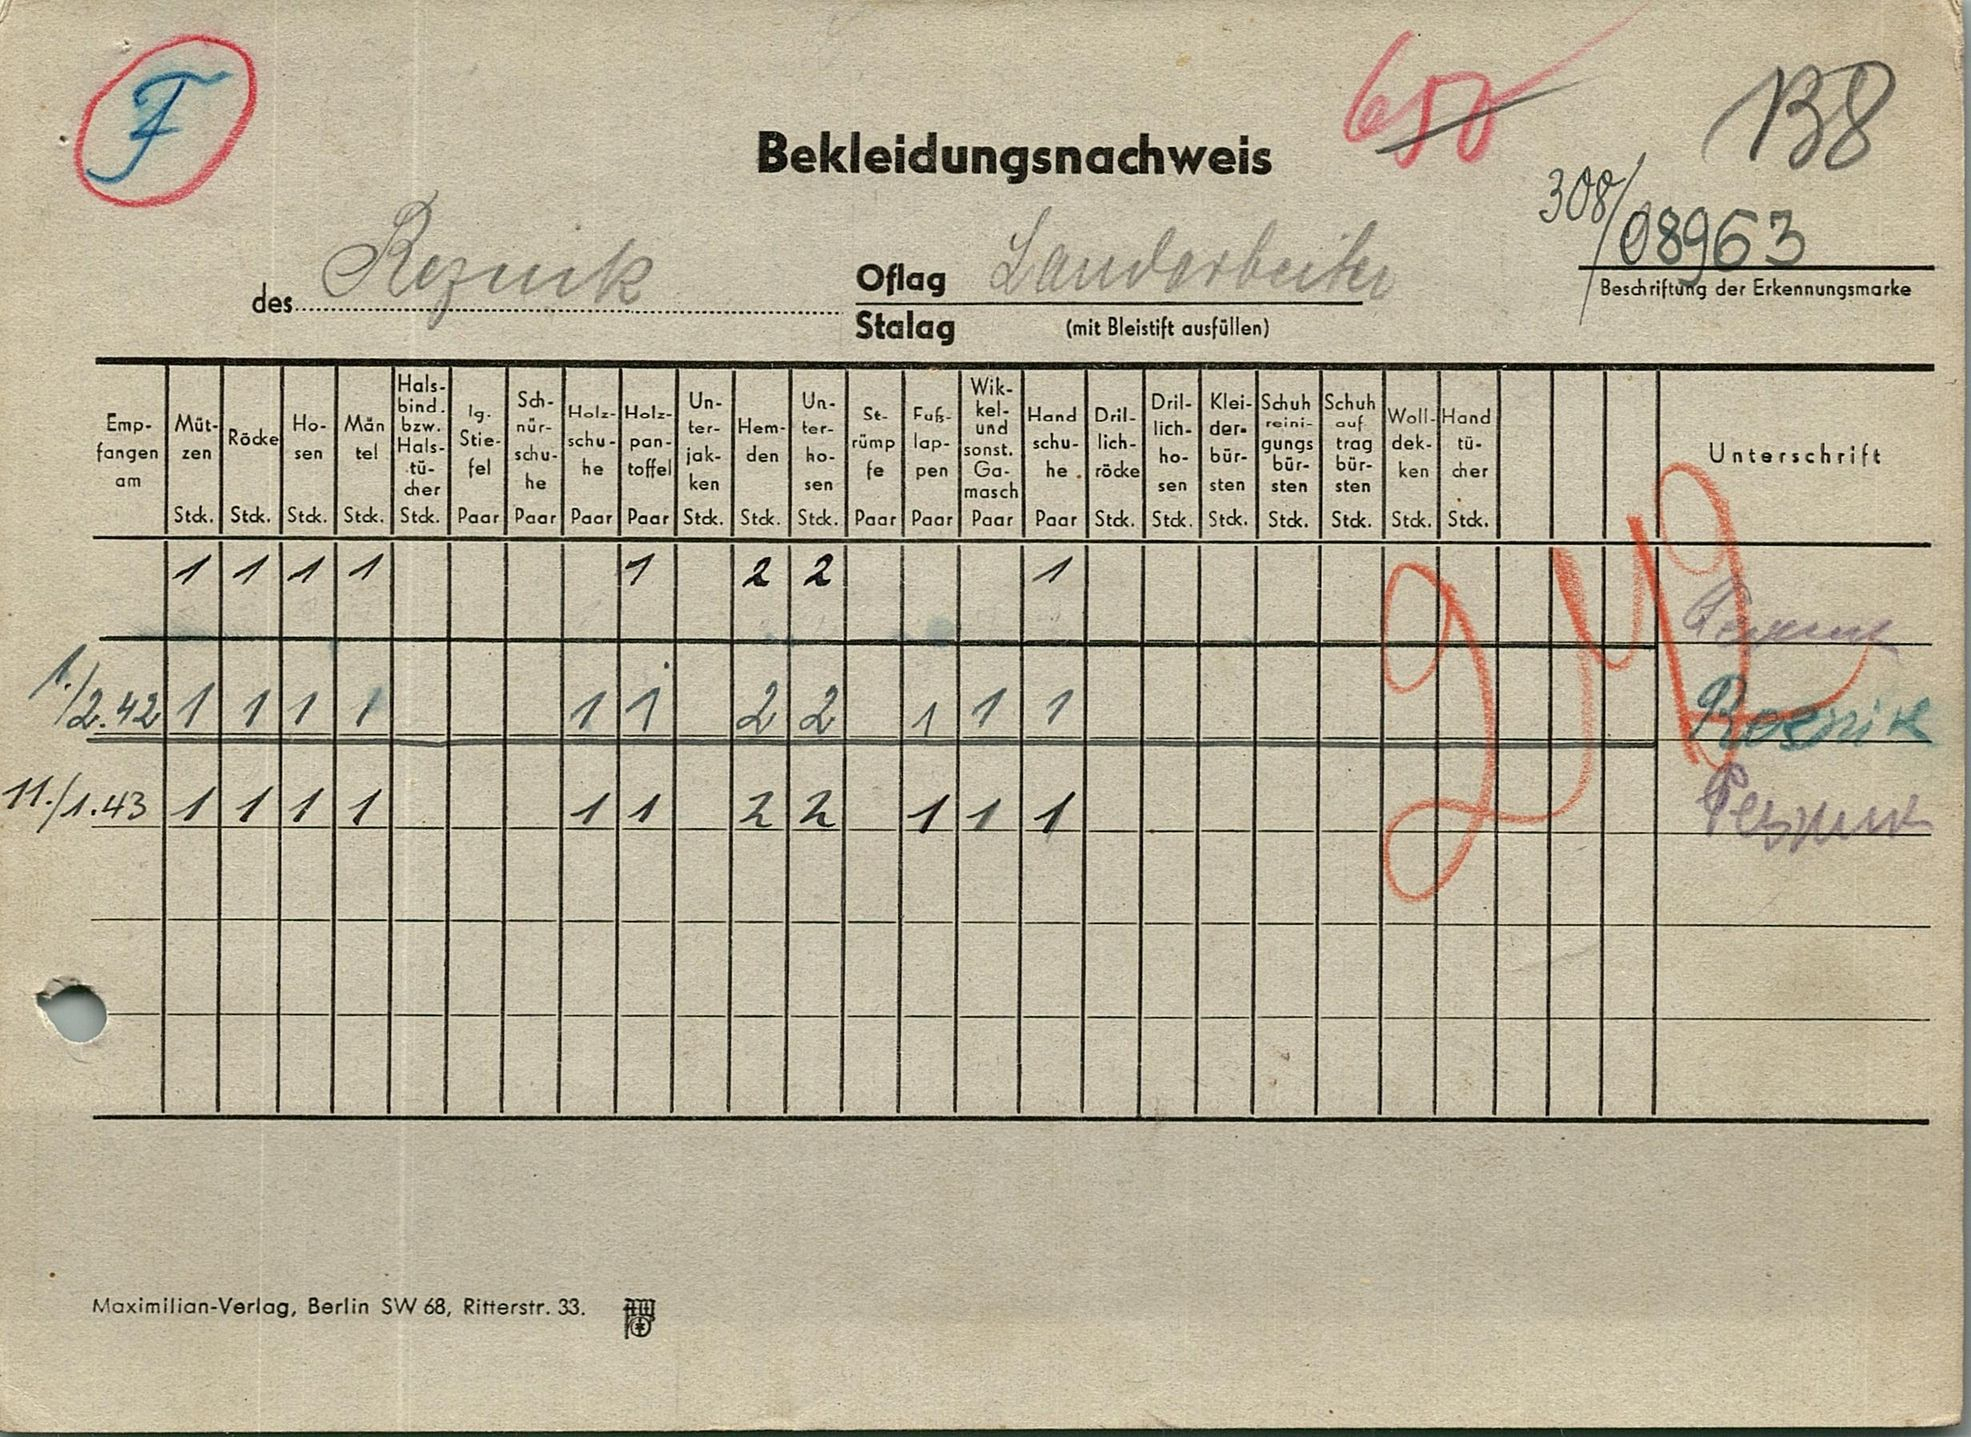 F
650
B8
Bekleidungsnachweis
308/08963
des Reznik Oflag Landarbeiter
Beschriftung der Erkennungsmarke
Stalag (mit Bleistift ausfüllen)
Emp-fangen am
Müt-zen Stck.
Röcke Stck.
Ho-sen Stck.
Män tel Stck.
Hals-bind. bzw. Hals-tü-cher Stck.
lg. Stie-fel Paar
Sch-nür-schu-he Paar
Holz-schu-he Paar
Holz-pan-toffel Paar
Un-ter-jak-ken Stck.
Hem-den Stck.
Un-ter-ho-sen Stck.
St-rümp fe Paar
Fuß-lap-pen Paar
Wik-kel-und sonst. Ga-masch Paar
Hand schu-he Paar
Dril-lich-röcke Stck.
Dril-lich-ho-sen Stck.
Klei-der-bür-sten Stck.
Schuh reini-gungs bür-sten Stck.
Schuh auf trag bür-sten Stck.
Woll-dek-ken Stck.
Hand tü-cher Stck.
Unterschrift
1 1 1 1 1 2 2 1
1./2.42 1 1 1 1 1 1 2 2 1 1 1
11./1.43 1 1 1 1 1 1 2 2 1 1 1
Maximilian-Verlag, Berlin SW 68, Ritterstr. 33.